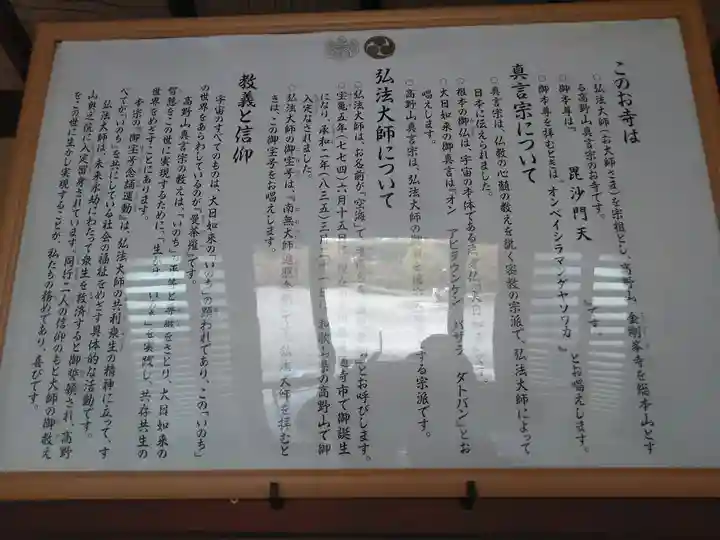 このお寺は
○弘法大師(お大師さま)を宗祖とし、高野山 金剛峯寺を総本山とす
る高野山真言宗のお寺です。
○御本尊は『 毘沙門天 』です。
○御本尊を拝むときは『オンベイシラマンダヤソワカ 』とお唱えします。
真言宗について
○真言宗は、仏教の心髄の教えを説く密教の宗派で、弘法大師によって
日本に伝えられました。
○根本の御仏は、宇宙の本体である
○大日如来の御真言は『オン アビラウンケン バザラ ダトバン』とお
唱えします。
○高野山真言宗は、弘法大師の する宗派です。
弘法大師について
○弘法大師は、お名前が「空海」で とお呼びします。
○宝亀五年(七七四)六月十五日 市で御誕生
になり、承和二年(八三五)三月二十一日 和歌山県の高野山で御
入定なされました。
○弘法大師の御宝号は、『南無大師遍照金剛』 弘法大師を拝むと
きは、この御宝号をお唱えします。
教義と信仰
宇宙のすべてのものは、大日如来の「いのち」の顕われであり、この「いのち」
の世界をあらわしているのが『曼荼羅』です。
高野山真言宗の教えは、「いのち」の をさとり、大日如来の
智慧をこの世に実現するために、「生 」を実践し、共存共生の
世界をめざすことにあります。
本宗の『御宝号念誦運動』は、弘法大師の共利衆生の精神に立って、す
べてが「いのち」を共にしている社会の福祉をめざす具体的な活動です。
弘法大師は、未来永劫にわたって衆生を救済すると御誓願され、高野
山奥之院に入定留身されています。同行二人の信仰のもと大師の御教え
をこの世に生かし実現することが、私たちの務めであり、喜びです。